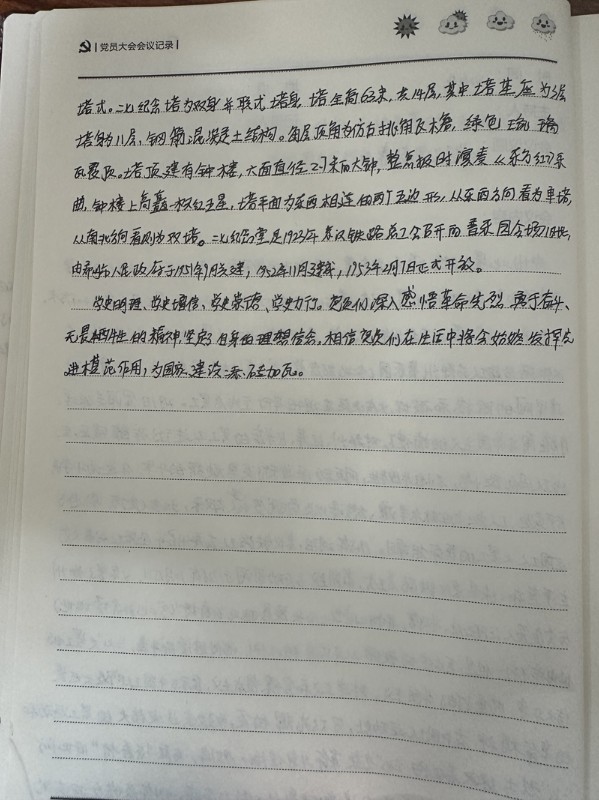 党员大会会议记录
塔式。二七纪念塔为双身并联式塔身，塔全高63米，共14层，其中塔基座为3层
塔身为11层，钢筋混凝土结构。每层顶角为仿古挑角飞檐，绿色琉璃
瓦覆顶。塔顶建有钟楼，六面直径2.7米的大钟，整点报时演奏《东方红》乐
曲，钟楼上高矗一枚红五星，塔平面为东西相连的两个五边形，从东西方向看为单塔，
从南北方向看则为双塔。二七纪念堂是1923年京汉铁路总工会召开的
由人民政府于1951年9月兴建，1952年11月建成，1953年2月7日正式开放。
学史明理、学史增信、学史崇德、学史力行。党员们深入感悟革命先烈勇于奋斗、
无畏牺牲的精神坚定自身的理想信念，相信党员们在生活中将会始终发挥先
进模范作用，为国家建设添砖加瓦。